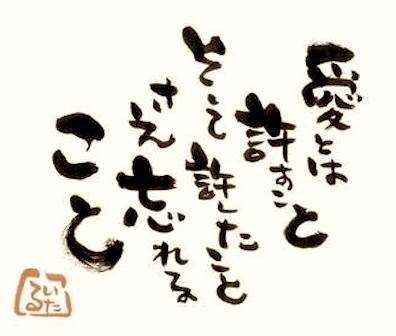 愛とは
許すこと
そして許したこと
さえ忘れる
こと